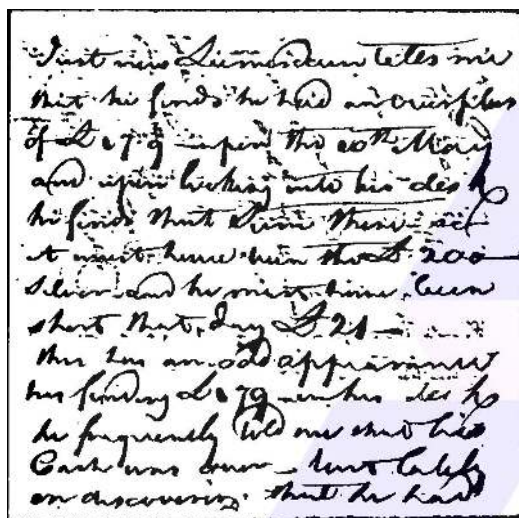 Just now Lumsdain tells me
that he finds he had an overplus
of £179 upon the 20th May
and upon looking into his desk
he finds that Sum there so
it must have been the £200
Silver and he must have been
short that day £21 -
this has an odd appearance
his finding £179 in his desk
he frequently told me that his
Cash was over - but lately
on discovering that he had